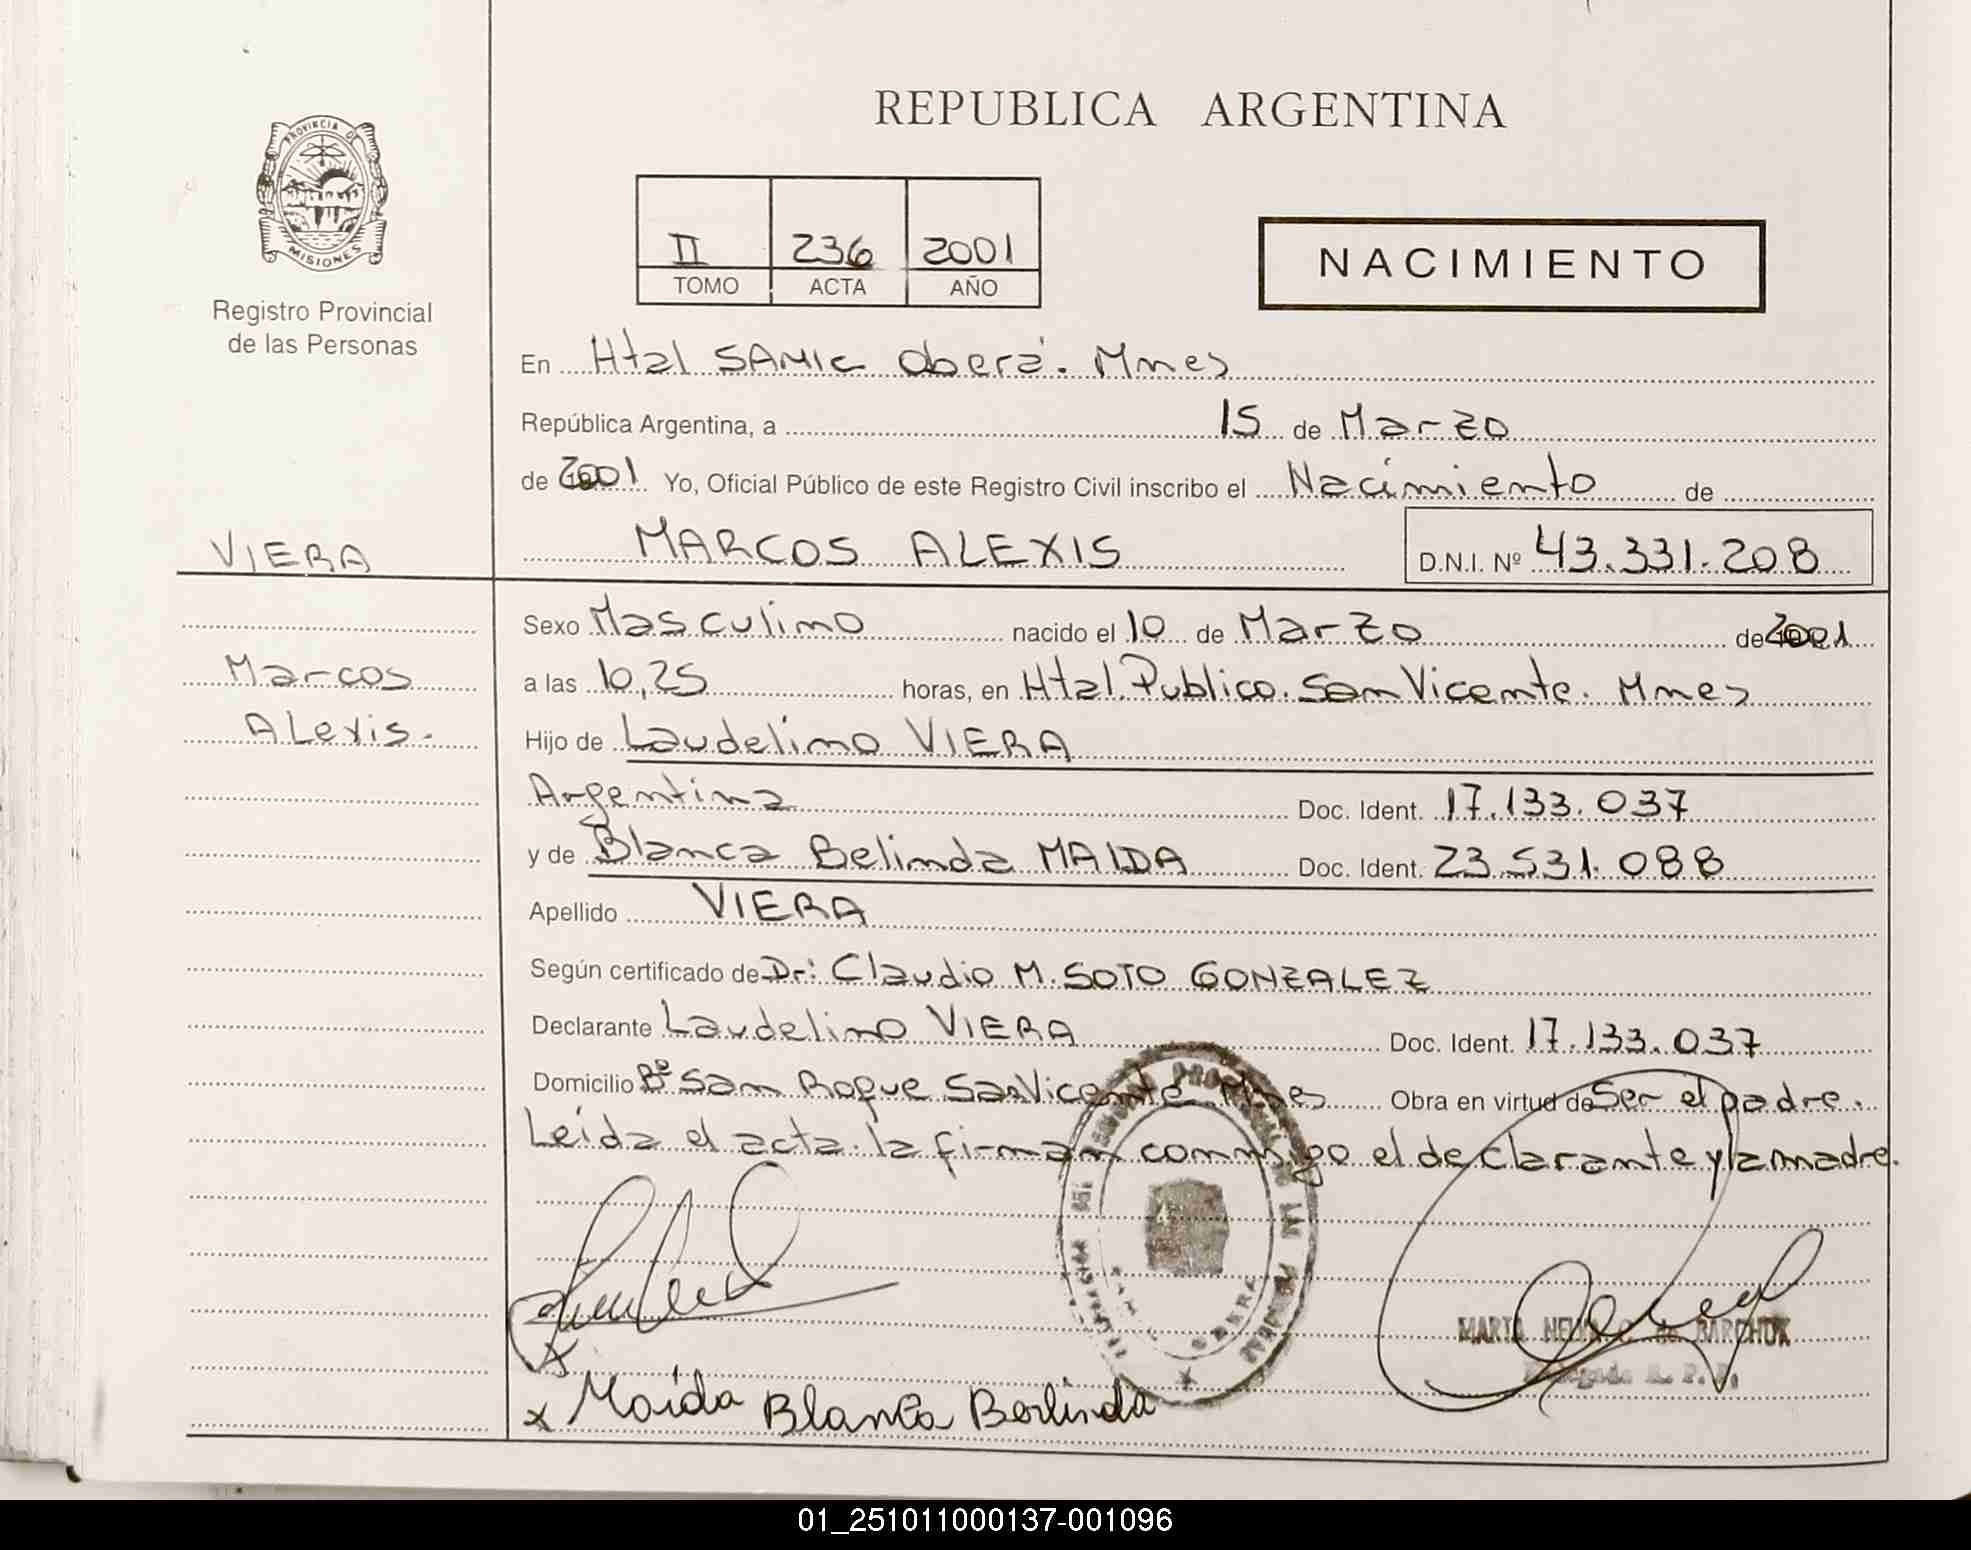 REPUBLICA ARGENTINA
PROVINCIA DE
MISIONES
Registro Provincial
de las Personas
II 236 2001
TOMO ACTA AÑO
NACIMIENTO
En Htal SAMIC Oberá. Mnes
República Argentina, a 15 de Marzo
de 2001 Yo, Oficial Público de este Registro Civil inscribo el Nacimiento de
VIERA
MARCOS ALEXIS D.N.I. Nº 43.331.208
Marcos
Alexis.
Sexo Masculino nacido el 10 de Marzo de 2001
a las 10,25 horas, en Htal. Publico. San Vicente. Mnes
Hijo de Laudelino VIERA
Argentina Doc. Ident. 17.133.037
y de Blanca Belinda MAIDA Doc. Ident. 23.531.088
Apellido VIERA
Según certificado de Dr: Claudio M. SOTO GONZALEZ
Declarante Laudelino VIERA Doc. Ident. 17.133.037
Domicilio Bº San Roque San Vicente Mnes Obra en virtud de Ser el padre.
Leída el acta. la firman conmigo el declarante y la madre.
OBERA
MARTA C. de BARCHUK
Delegada R. P. P.
x Maida Blanca Berlinda
01_251011000137-001096